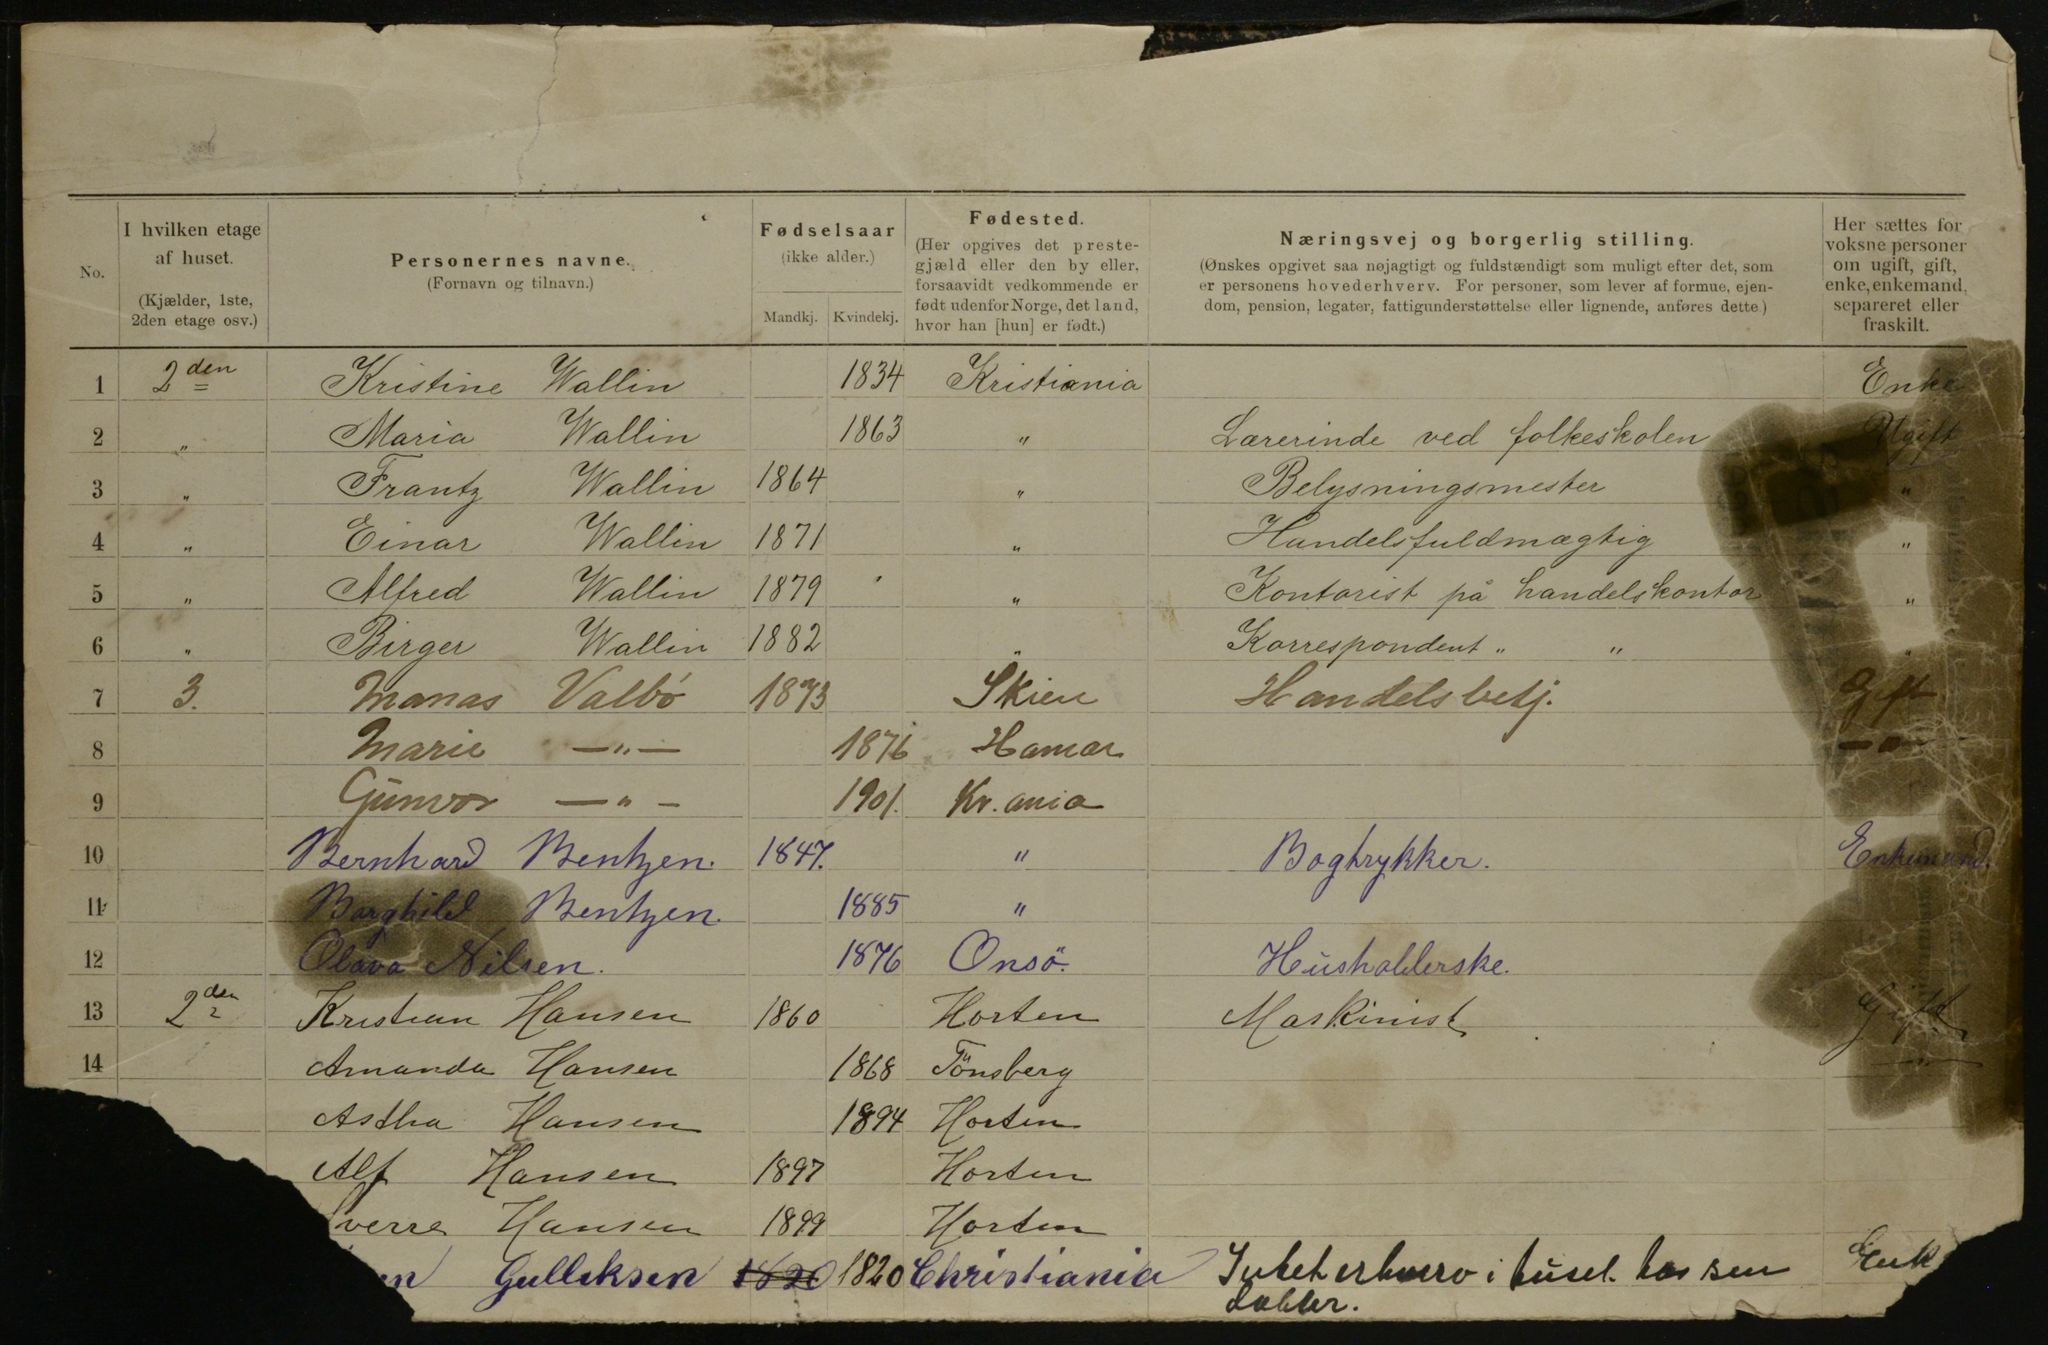 No.
I hvilken etage af huset. (Kjælder, 1ste, 2den etage osv.)
Personernes navne. (Fornavn og tilnavn.)
Fødselsaar (ikke alder.)
Mandkj. Kvindekj.
Fødested. (Her opgives det prestegjæld eller den by eller, forsaavidt vedkommende er født udenfor Norge, det land, hvor han [hun] er født.)
Næringsvej og borgerlig stilling. (Ønskes opgivet saa nøjagtigt og fuldstændigt som muligt efter det, som er personens hovederhverv. For personer, som lever af formue, ejendom, pension, legater, fattigunderstøttelse eller lignende, anføres dette.)
Her sættes for voksne personer om ugift, gift, enke, enkemand, separeret eller fraskilt.
1 2den Kristine Wallin 1834 Kristiania Enke
2 " Maria Wallin 1863 " Lærerinde ved folkeskolen Ugift
3 " Frantz Wallin 1864 " Belysningsmester "
4 " Einar Wallin 1871 " Handelsfuldmægtig "
5 " Alfred Wallin 1879 " Kontorist på handelskontor "
6 " Birger Wallin 1882 " Korrespondent " " "
7 3. Monas Valbö 1873 Skien Handelsbetj. Gift
8 Marie —"— 1876 Hamar —"—
9 Gunvor —"— 1901. Kr.ania
10 Bernhard Bentzen. 1847. " Bogtrykker. Enkemand.
11 Borghild Bentzen. 1885 "
12 Olava Nilsen. 1876 Onsö. Husholderske.
13 2den Kristian Hansen 1860 Horten Maskinist Gift
14 Amanda Hansen 1868 Tönsberg —"—
Astha Hansen 1894 Horten
Alf Hansen 1897 Horten
verre Hansen 1899 Horten
en Gulleksen 1820 1820 Christiania Intet erhverv i huset hos sen Enk
datter.